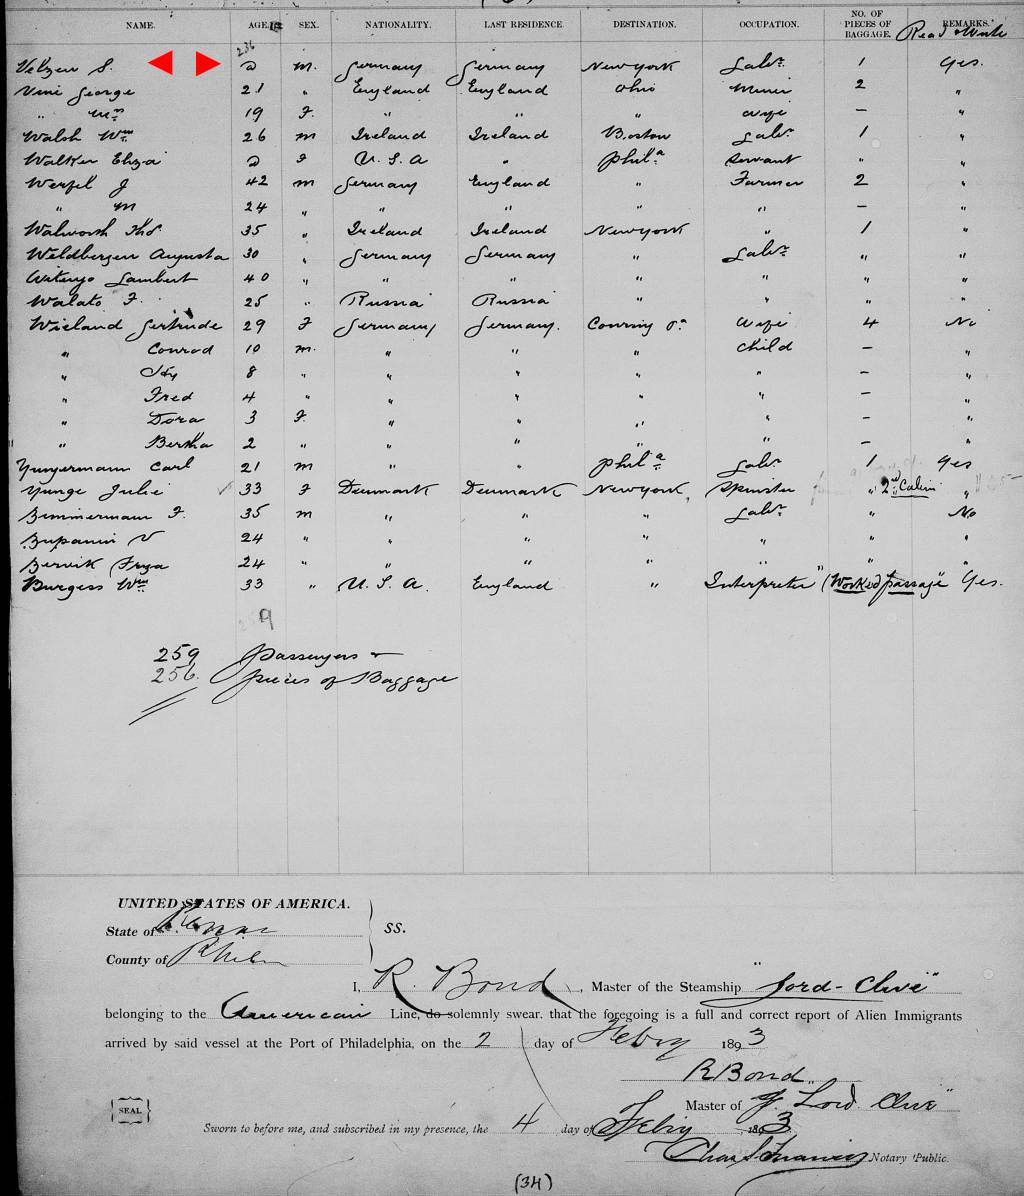 NAME. AGE. SEX. NATIONALITY. LAST RESIDENCE. DESTINATION. OCCUPATION. NO. OF PIECES OF BAGGAGE. REMARKS. Read & Write
236
Velzen S. a m. Germany Germany New York Labr. 1 Yes.
Vine George 21 " England England Ohio Miner 2 "
" Mrs 19 F. " " " Wife – "
Walsh Wm 26 m Ireland Ireland Boston Labr. 1 "
Walker Eliza a F U.S.A " Phila Servant " "
Werfel J 42 m Germany England " Farmer 2 "
" M 24 " " " " " – "
Walworth Thos 35 " Ireland Ireland New York " 1 "
Wildbergen Augusta 30 " Germany Germany " Labr. " "
Lambert 40 " " " " " " "
Walato F. 25 " Russia Russia " " " "
Wieland Gertrude 29 F Germany Germany. Wife 4 No
" Conrad 10 m. " " " Child – "
" 8 " " " " " – "
" Fred 4 " " " " " – "
" Dora 3 F. " " " " – "
" Bertha 2 " " " " " – "
Yungermann Carl 21 m " " Phila Labr. 1 Yes
Yunge Julie 33 F Denmark Denmark New York Spinster " 2nd Cabin "
Zimmermann F. 35 m " " " Labr. " No
Zupanin V 24 " " " " " " "
Zervik 24 " " " " " " "
Burgess Wm 33 " U.S.A. England " Interpreter "(Worked passage" Yes.
9
259 Passengers
256. pieces of Baggage
UNITED STATES OF AMERICA.
State of Penna } ss.
County of Philan
I, R. Bond, Master of the Steamship "Lord-Clive"
belonging to the American Line, do solemnly swear. that the foregoing is a full and correct report of Alien Immigrants
arrived by said vessel at the Port of Philadelphia, on the 2 day of Feby 1893
R Bond
Master of Lord Clive"
SEAL
Sworn to before me, and subscribed in my presence, the 4 day of Feby, 1893
Chas S. Francis Notary Public.
(34)